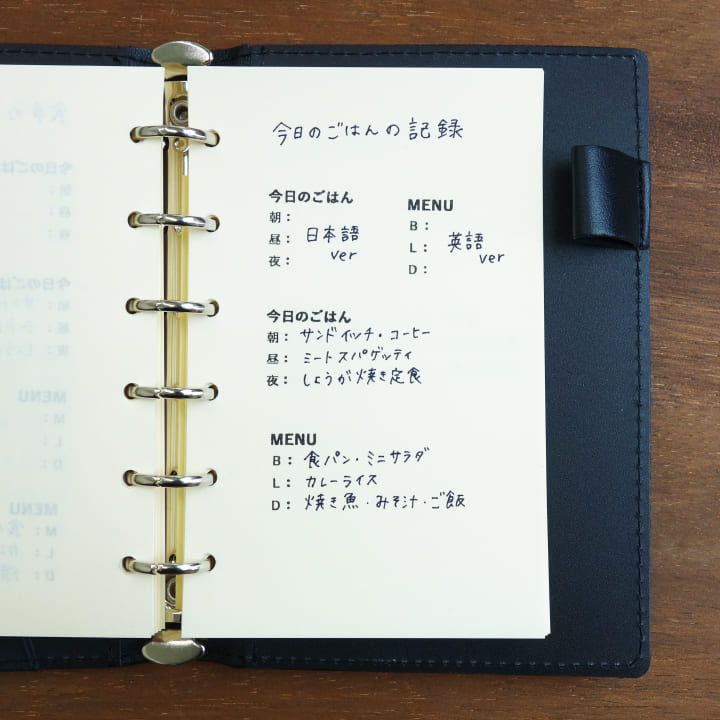 今日のごはんの記録
今日のごはん
朝：
昼： 日本語
夜： ver
MENU
B：
L： 英語
D： ver
今日のごはん
朝： サンドイッチ・コーヒー
昼： ミートスパゲッティ
夜： しょうが焼き定食
MENU
B： 食パン・ミニサラダ
L： カレーライス
D： 焼き魚・みそ汁・ご飯